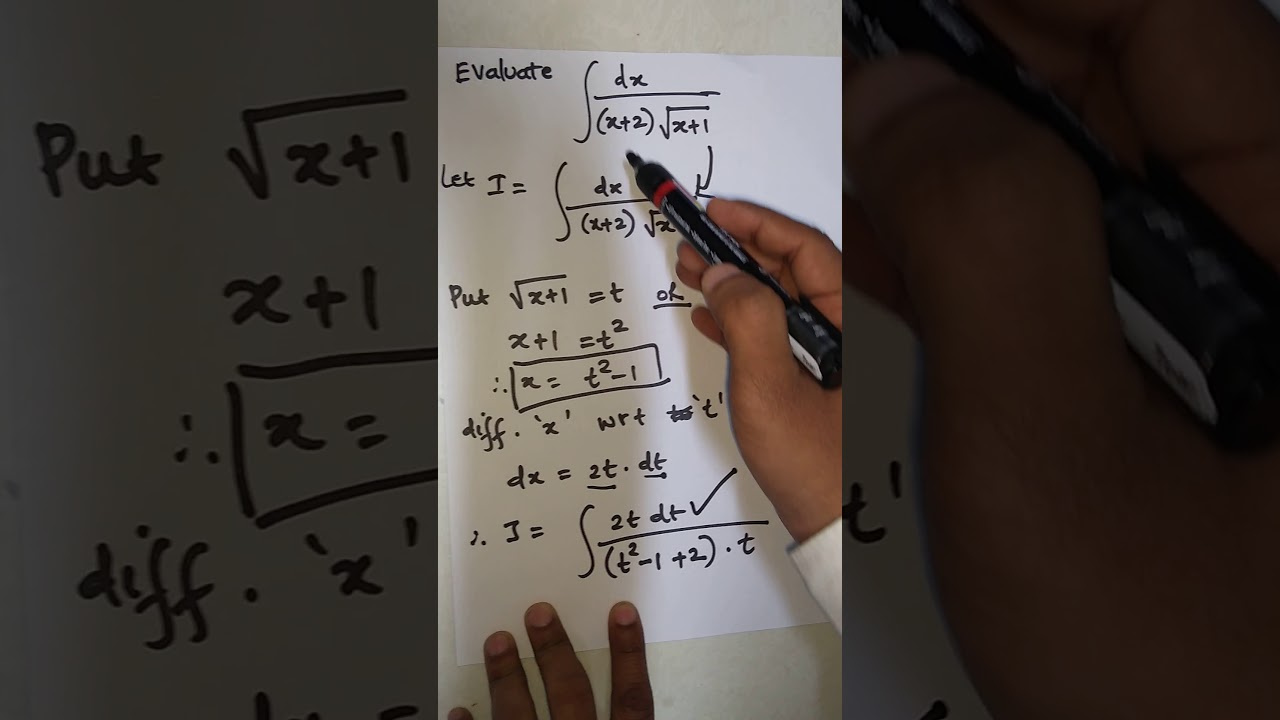 Evaluate ∫ dx / (x+2) √x+1
Let I = ∫ dx / (x+2) √x
Put √x+1 = t or
x+1 = t²
∴ x = t²-1
diff. 'x' wrt 't'
dx = 2t . dt
∴ I = ∫ 2t dt / (t²-1+2) . t